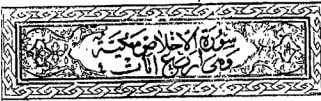 سورة الاخلاص مكية
وهي اربع ايات